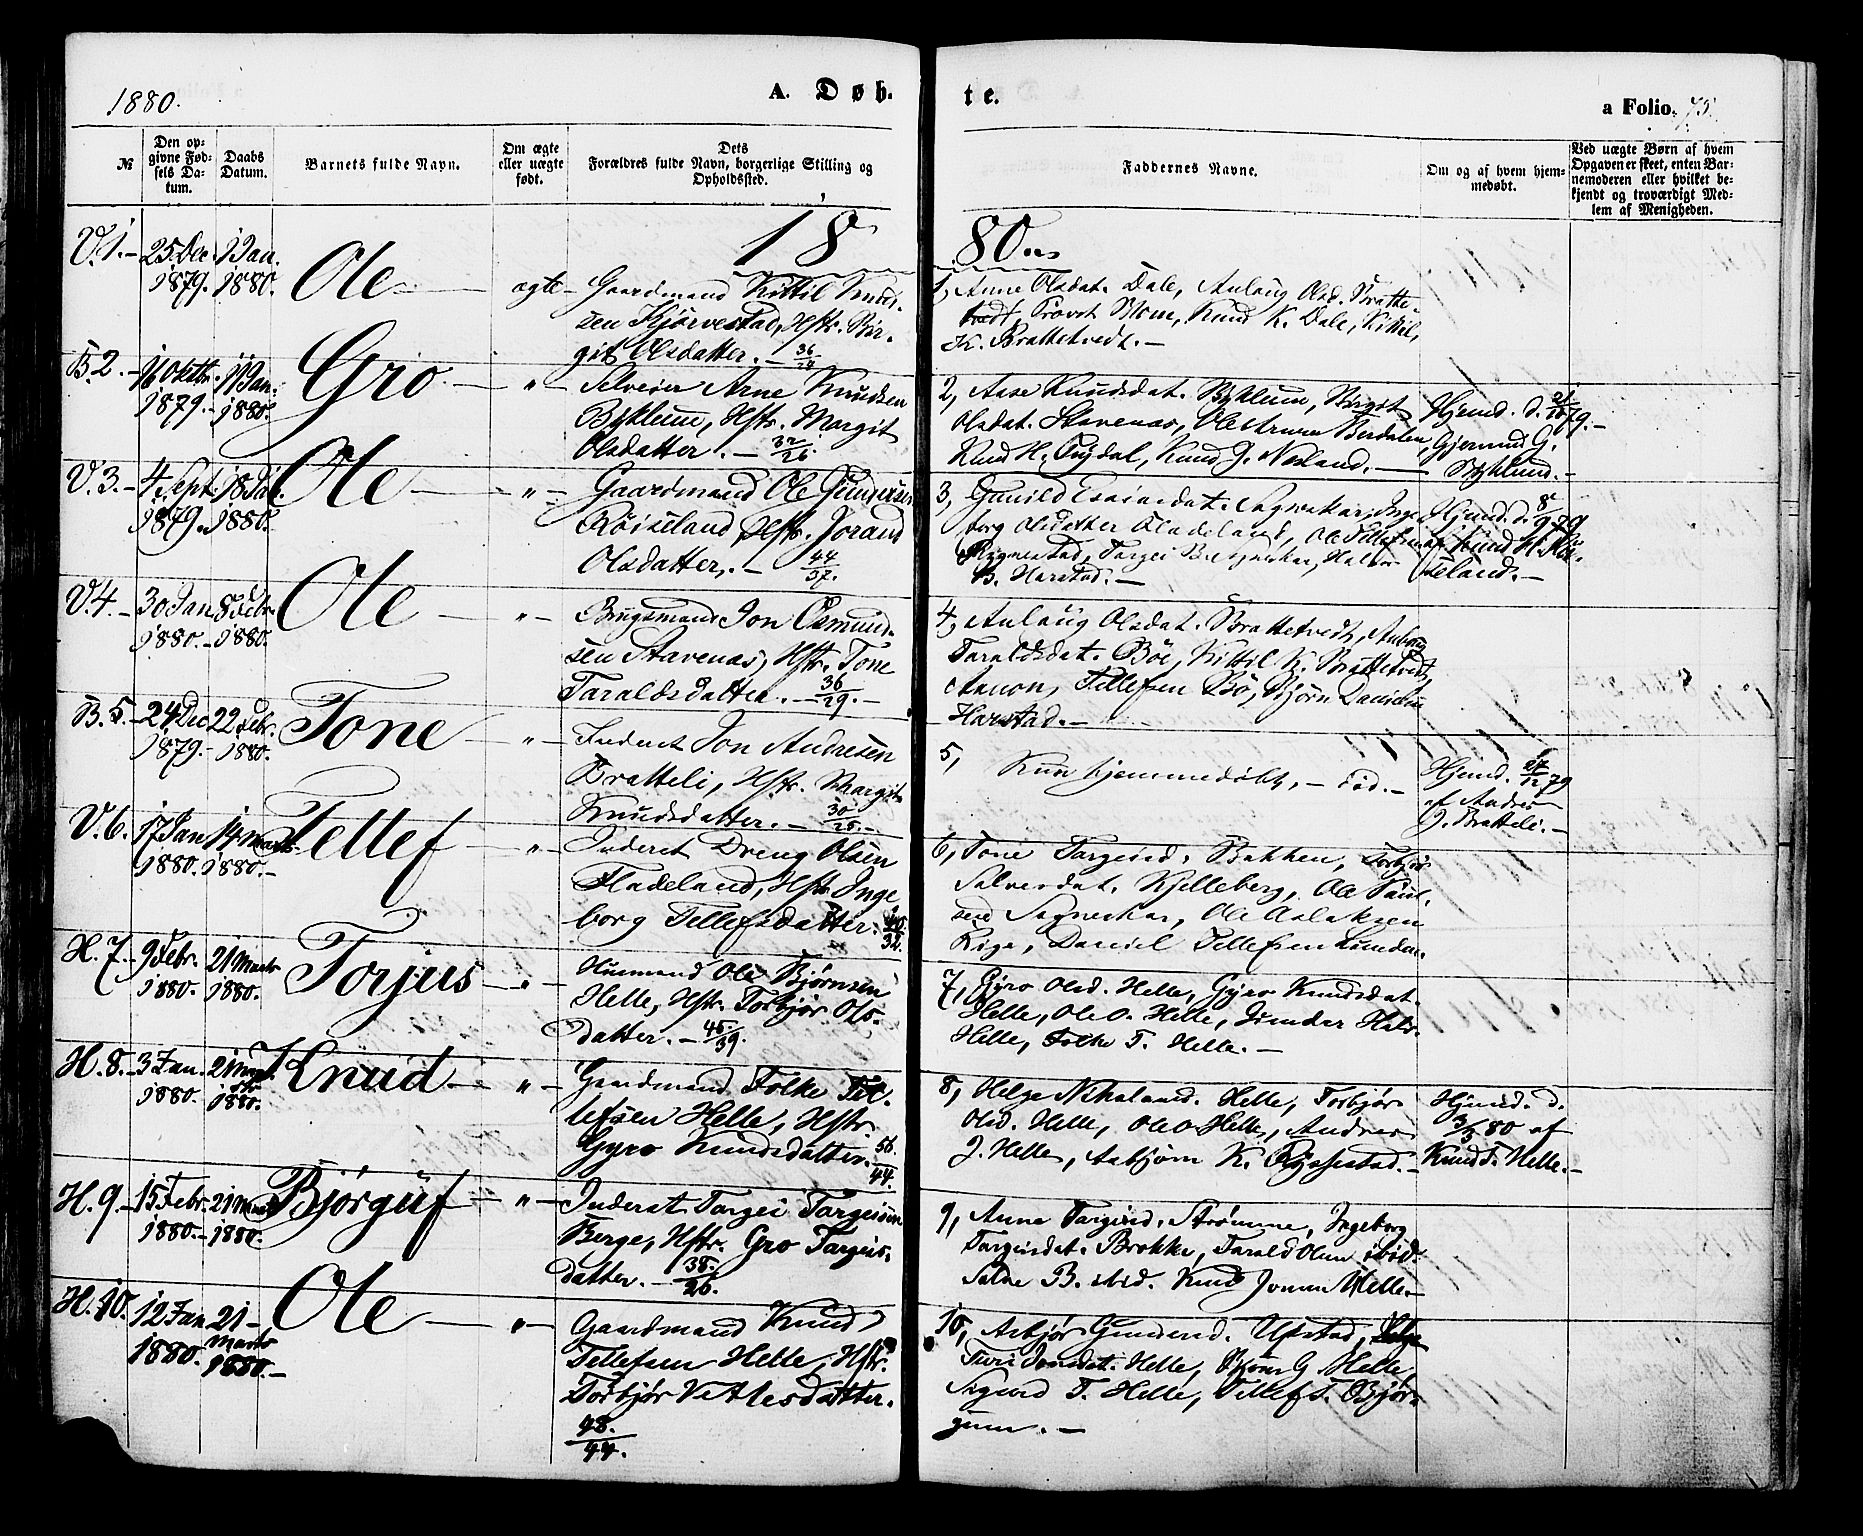 1880.
A. Døb.
te.
a Folio. 75.
№
Den op-
givne Fød-
sels Da-
tum.
Daabs
Datum.
Barnets fulde Navn.
Om ægte
eller uægte
født.
Dets
Forældres fulde Navn, borgerlige Stilling og
Opholdssted.
Faddernes Navne.
Om og af hvem hjem-
medøbt.
Ved uægte Børn af hvem
Opgaven er skeet, enten Bar-
nemoderen eller hvilket be-
kjendt og troværdigt Med-
lem af Menigheden.
18
80.
V. 1.- 25. Dec. 1 Jan.
1879. 1880.
Ole
ægte-
Gaardmand Kittil Knud-
sen Kjörvestad, Hstr. Bir-
git Olsdatter. - 36/28
1, Anne Olsdat. Dale, Aulaug Olsd. Bratte-
tvedt, Provst Blom, Knud K. Dale, Kittil
K. Brattetvedt. -
B. 2. - 16 Oktbr. 11 Jan.
1879.- 1880.
Gro
" -
Selveier Arne Knudsen
Byklum, Hstr. Margit
Olsdatter. - 32/26.
2, Aase Knudsdat. Byklum, Birgit
Olsdat. Stavenæs, Ole Berdalen,
Knud H. Nesland. -
Hjemd. d. 79. -
Gjermund G.
Byklum. -
V. 3. - 4 Sept. 18 Jan.
1879. 1880.
Ole
" -
Gaardmand Ole Gundersen
Röiseland Hstr. Jorand
Olsdatter. - 44/37.
3, Gunild Sagneskar, Inge-
borg Olsdatter Fladeland, Ole Tellefsen
Rygnestad, Targei Halvor
B. Harstad. -
Hjemd. d. 8/9 79
af Knud H. Röi-
seland. -
V. 4. - 30 Jan 8 Febr.
1880. - 1880.
Ole
" -
Brugsmand Jon Osmund-
sen Stavenæs, Hstr. Tone
Taraldsdatter. - 36/29. -
4, Aulaug Olsdat. Brattetvedt,
Taraldsdat. Böe, Kittil K. Brattetvedt,
Tellefsen Bö, Björn
Harstad. -
B. 5. - 24 Dec 22 Febr.
1879. - 1880.
Tone
" -
Inderst Jon Andresen
Bratteli, Hstr. Margit
Knudsdatter. - 30/25. -
5, Kun hjemmedøbt, - död. -
Hjemd. 27/12 79
af Andres
J. Bratteli. -
V. 6. 17 Jan 14 Marts
1880. 1880. -
Tellef
" -
Inderst Dreng Olsen
Fladeland, Hstr Inge-
borg Tellefsdatter. 40/32.
6, Tone Bakken, Torbjör
Salvesdat. Kjelleberg, Ole Paul-
sen Sagneskar, Ole Aslaksen
Rige, Daniel Tellefsen Lunden.
H. 7. - 9 Febr. 21 Marts
1880. 1880.
Torjus
" -
Husmand Ole Björnsen
Helle, Hstr. Torbjör Ols-
datter. - 45/39.
7, Gyro Olsd. Helle, Gyro Knudsdat.
Helle, Ole O. Helle, Gunder
Helle, Folke T. Helle. -
H. 8. - 3 Jan. 21 Marts
1880. 1880.
Knud
" -
Gaardmand Folke Tel-
lefsen Helle, Hstr.
Gyro Knudsdatter. 56/44.
8, Helge Helle, Torbjör
Olsd. Helle, Ole O. Helle, Andres
J. Helle, Asbjörn K. Rysstad. -
Hjemd. d.
3/3 80 af
Knud F. Helle. -
H. 9. - 15 Febr. 21 Marts
1880. - 1880.
Björguf
" -
Inderst Targei Targeisen
Berge, Hstr. Gro Targeis-
datter. - 38/26.
9, Anne Strömme, Ingeborg
Targeisdat. Brokke, Tarald Olsen ibid.
B. ibid. Knud Jonsen Helle. -
H. 10. 12 Jan. 21 -
Marts
1880. 1880. -
Ole
" -
Gaardmand Knud
Tellefsen Helle, Hstr.
Torbjör Vetlesdatter.
48/44.
10, Asbjör Gundersd. Upstad,
Turi Jonsdat. Helle, Björn G. Helle,
Sigurd T. Helle, Tellef T. Björ-
gum. -